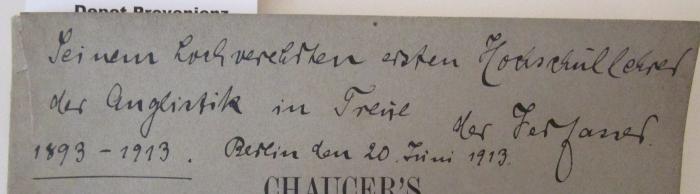 Depot Provenienz
Seinem hochverehrten ersten Hochschullehrer
der Anglistik in Treue der Verfasser.
1893 - 1913. Berlin den 20. Juni 1913.
CHAUCER'S